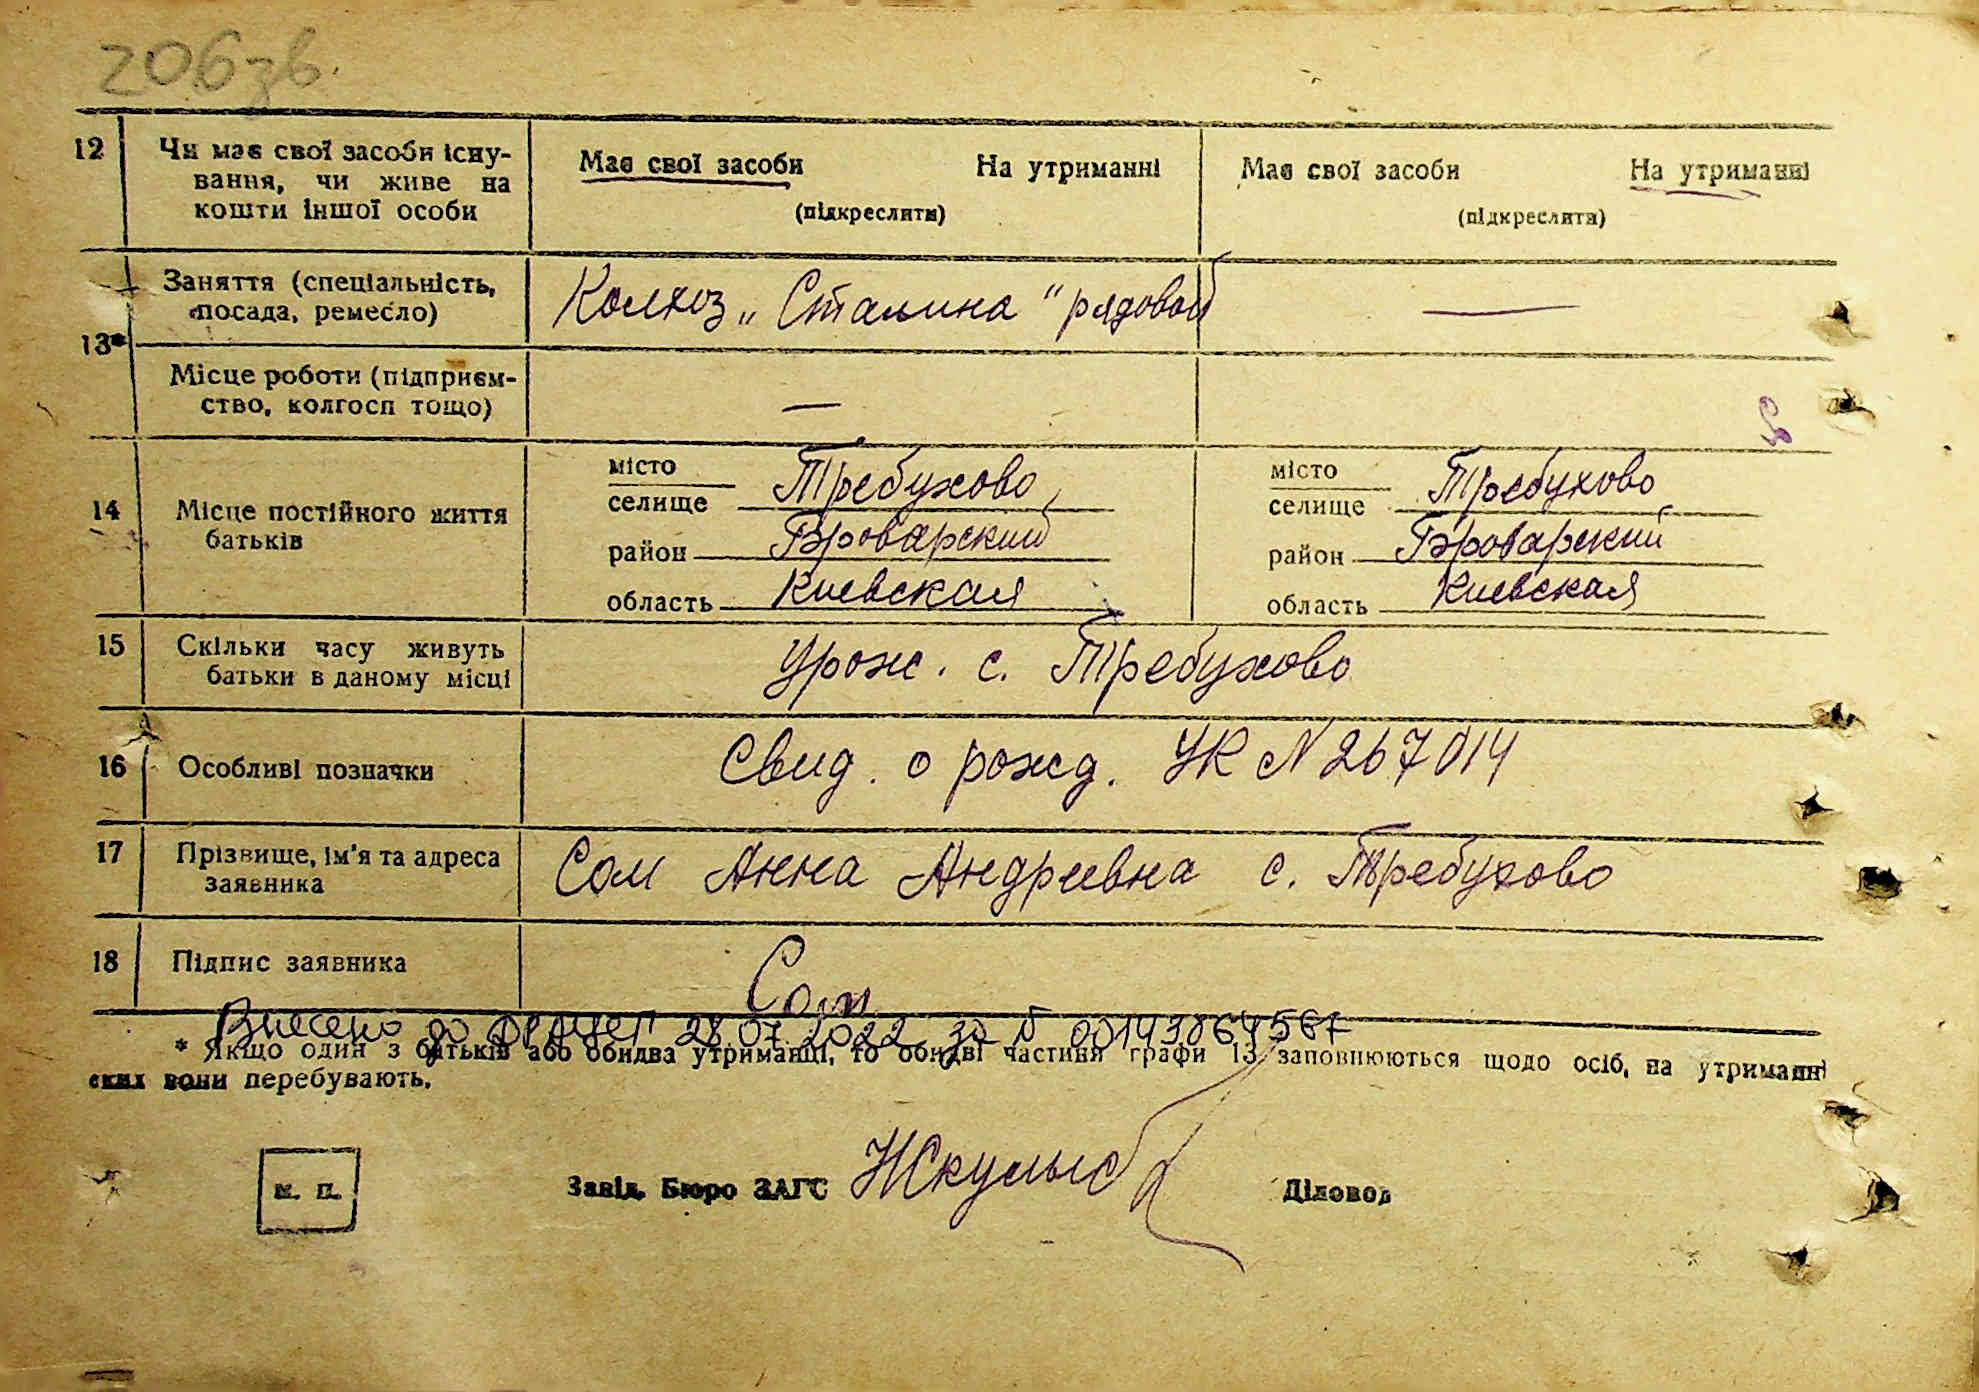 206 зв.
12 Чи має свої засоби існування, чи живе на кошти іншої особи
Має свої засоби На утриманні (підкреслити)
Має свої засоби На утриманні (підкреслити)
13*
Заняття (спеціальність, посада, ремесло)
Колхоз „Сталина" рядовой —
Місце роботи (підприємство, колгосп тощо)
—
14 Місце постійного життя батьків
місто
селище Требухово,
район Броварский
область Киевская
місто
селище Требухово,
район Броварский
область Киевская
15 Скільки часу живуть батьки в даному місці
Урож. с. Требухово
16 Особливі позначки
Свид. о рожд. УК N 267014
17 Прізвище, ім'я та адреса заявника
Сом Анна Андреевна с. Требухово
18 Підпис заявника
Сом
Внесено до ДРАЦСГ 28.07.2022 за № 00143864567
* Якщо один з батьків або обидва утриманці, то обидві частини графи 13 заповнюються щодо осіб, на утриманні
яких вони перебувають.
м. п.
Завід. Бюро ЗАГС
Діловод